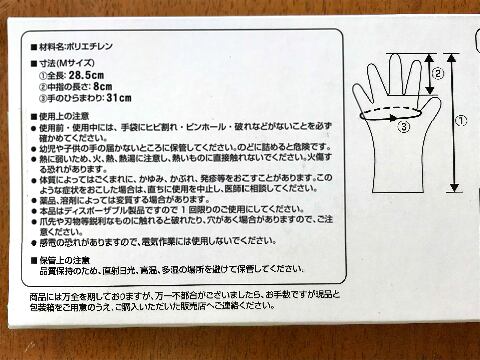 ■材料名:ポリエチレン
■寸法(Mサイズ)
①全長: 28.5cm
②中指の長さ: 8cm
③手のひらまわり: 31cm
■使用上の注意
●使用前・使用中には、手袋にヒビ割れ・ピンホール・破れなどがないことを必ず
確かめてください。
●幼児や子供の手の届かないところに保管してください。のどに詰めると危険です。
●熱に弱いため、火、熱、熱湯に注意し、熱いものに直接触れないでください。火傷す
る恐れがあります。
●体質によってはごくまれに、かゆみ、かぶれ、発疹等をおこすことがあります。この
ような症状をおこした場合は、直ちに使用を中止し、医師に相談してください。
●薬品、溶剤によっては変質する場合があります。
●本品はディスポーザブル製品ですので1回限りのご使用にしてください。
●爪先や刃物等鋭利なものに触れると破れたり、穴があく場合がありますので、ご注
意ください。
●感電の恐れがありますので、電気作業には使用しないでください。
■保管上の注意
品質保持のため、直射日光、高温、多湿の場所を避けて保管してください。
商品には万全を期しておりますが、万一不都合がございましたら、お手数ですが現品と
包装箱をご用意のうえ、ご購入いただいた販売店へご連絡ください。
②
①
③